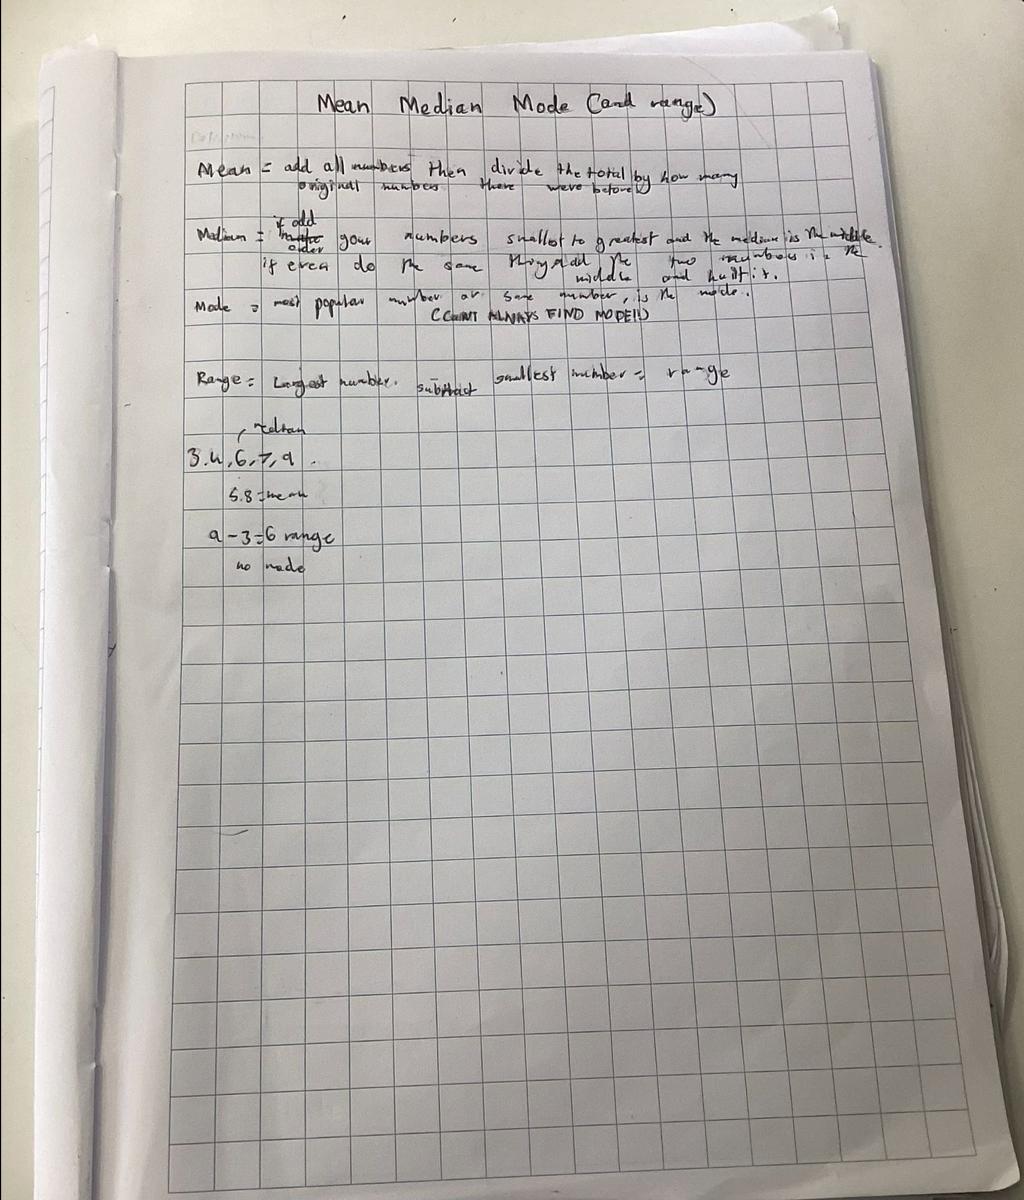 Mean Median Mode (and range)
Mean = add all numbers then divide the total by how many
original numbers there were before
if odd
Median = order your numbers smallest to greatest and the median is the middle.
if even do the same thing add the two numbers in the
middle and half it.
Mode = most popular number or same number, is the mode.
(CAN'T ALWAYS FIND MODE!!)
Range = Largest number. subtract smallest number = range
median
3.4,6,7,9
5.8 = mean
9-3=6 range
no mode